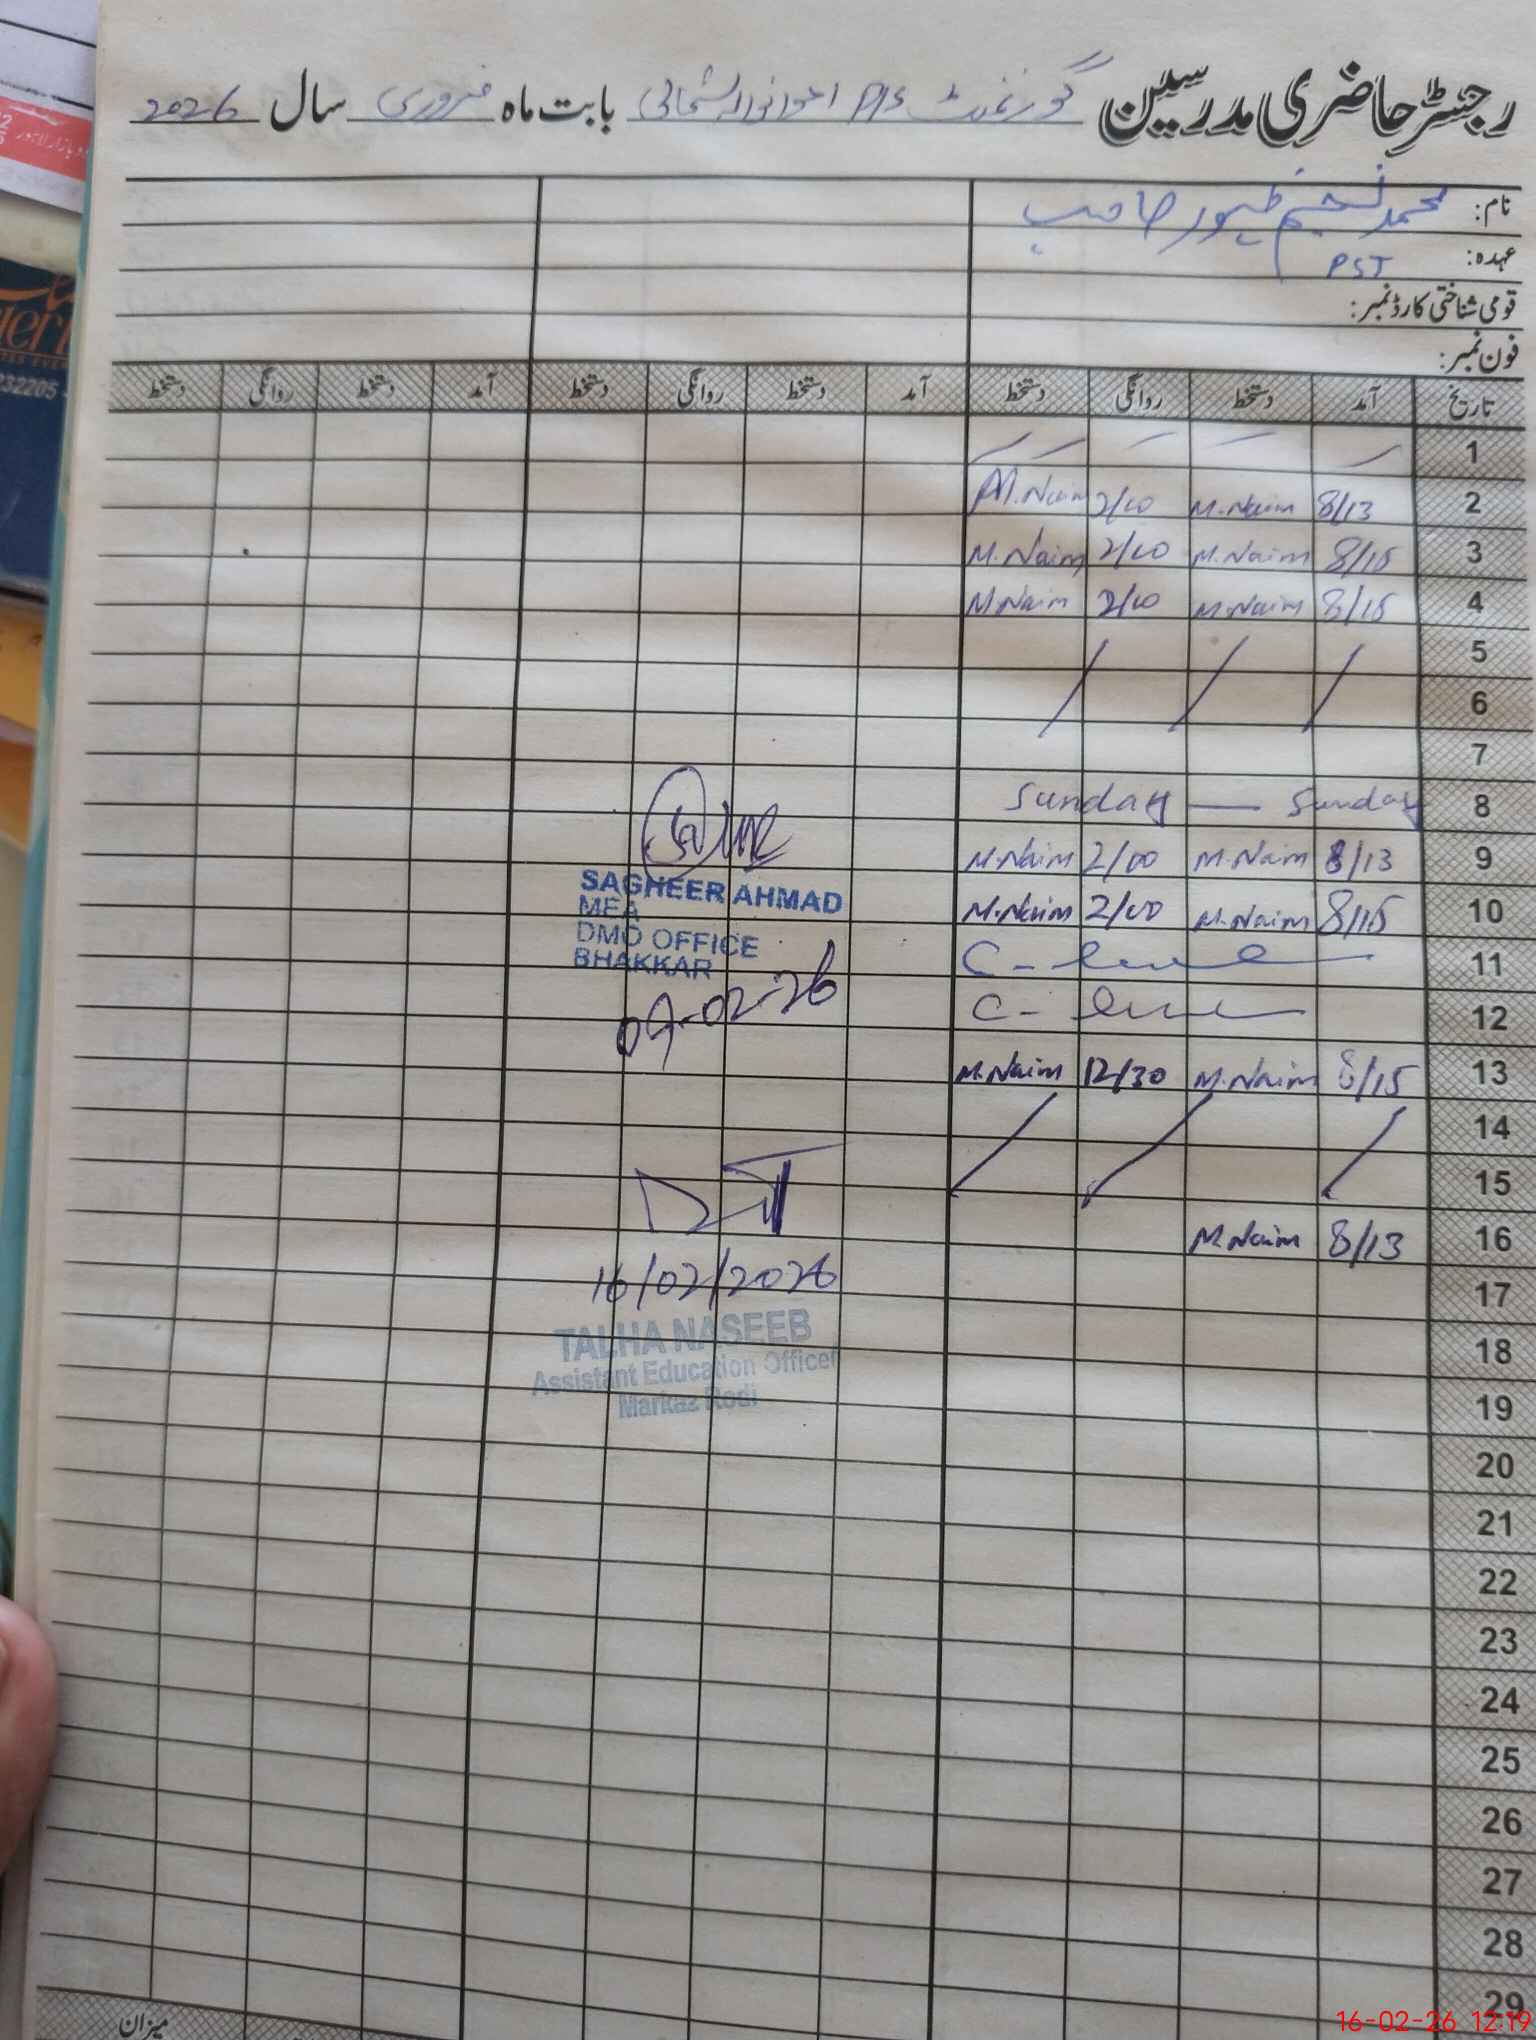 رجسٹر حاضری مدرسین گورنمنٹ P/S بابت ماہ فروری سال 2026
نام: محمد نعیم ظہور صاحب
عہدہ: PST
قومی شناختی کارڈ نمبر:
فون نمبر:
تاریخ آمد دستخط روانگی دستخط آمد دستخط روانگی دستخط آمد دستخط روانگی دستخط
1
2 8/13 M.Naim 2/00 M.Naim
3 8/15 M.Naim 2/00 M.Naim
4 8/15 M.Naim 2/00 M.Naim
5
6
7
8 Sunday — Sunday
9 8/13 M.Naim 2/00 M.Naim
10 8/15 M.Naim 2/00 M.Naim
11 C-
12 C-
13 8/15 M.Naim 12/30 M.Naim
14
15
16 8/13 M.Naim
17
18
19
20
21
22
23
24
25
26
27
28
29
میزان
SAGHEER AHMAD
MEA
DMO OFFICE
BHAKKAR
09-02-26
16/02/2026
TALHA NASEEB
Assistant Education Officer
Markaz Rodi
32205
16-02-26 12:19